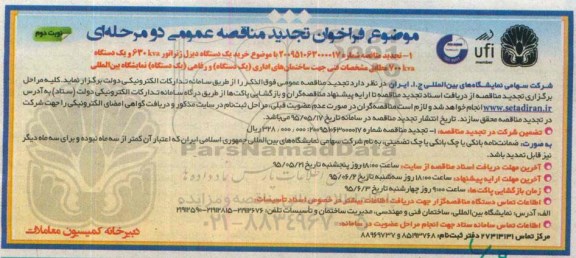 نوبت دوم
موضوع فراخوان تجدید مناقصه عمومی دو مرحله‌ای
ufi
member
۱- تجدید مناقصه شماره ۲۰۰۹۵۱۰۶۳۰۰۰۰۱۷ با موضوع خرید یک دستگاه دیزل ژنراتور ۶۳۰ kva و یک دستگاه
۷۰۰ kva مطابق مشخصات فنی جهت ساختمان‌های اداری (یک دستگاه) و رفاهی (یک دستگاه) نمایشگاه بین المللی
شرکت سهامی نمایشگاه‌های بین‌المللی ج.ا. ایران در نظر دارد تجدید مناقصه عمومی فوق‌الذکر را از طریق سامانه تدارکات الکترونیکی دولت برگزار نماید. کلیه مراحل
برگزاری تجدید مناقصه از دریافت اسناد تجدید مناقصه تا ارائه پیشنهاد مناقصه‌گران و بازگشایی پاکت‌ها از طریق درگاه سامانه تدارکات الکترونیکی دولت (ستاد) به آدرس
www.setadiran.ir انجام خواهد شد و لازم است مناقصه‌گران در صورت عدم عضویت قبلی، مراحل ثبت‌نام در سایت مذکور و دریافت گواهی امضای الکترونیکی را جهت شرکت
در تجدید مناقصه محقق سازند. تاریخ انتشار تجدید مناقصه در سامانه تاریخ ۹۵/۰۵/۱۷ می‌باشد.
تضمین شرکت در تجدید مناقصه: ۱- تجدید مناقصه شماره ۲۰۰۹۵۱۰۶۳۰۰۰۰۱۷: ۳۲۸/۰۰۰/۰۰۰ ریال
به صورت: ضمانت‌نامه بانکی یا چک بانکی یا چک تضمینی، به نام شرکت سهامی نمایشگاه‌های بین المللی جمهوری اسلامی ایران که اعتبار آن کمتر از سه ماه نبوده و برای سه ماه دیگر
نیز قابل تمدید باشد.
آخرین مهلت دریافت اسناد مناقصه از سایت: ساعت ۱۸:۰۰ روز پنجشنبه تاریخ ۹۵/۰۵/۲۱
آخرین مهلت ارایه پیشنهاد: ساعت ۱۸:۰۰ روز سه‌شنبه تاریخ ۹۵/۰۶/۲
زمان بازگشایی پاکت‌ها: ساعت ۹:۰۰ روز چهارشنبه تاریخ ۹۵/۶/۳
اطلاعات تماس دستگاه مناقصه‌گزار جهت دریافت اطلاعات بیشتر در خصوص اسناد تاسیسات
الف. آدرس: نمایشگاه بین‌المللی، ساختمان فنی و مهندسی، مدیریت ساختمان و تاسیسات تلفن: ۲۱۹۱۲۶۷۶-۲۱۹۱۲۸۱۵-۲۱۹۱۲۵۹۰
اطلاعات تماس سامانه ستاد جهت انجام مراحل عضویت در سامانه:
مرکز تماس ۲۷۳۱۳۱۳۱ دفتر ثبت‌نام: ۸۵۱۹۳۷۶۸ و ۸۸۹۶۹۷۳۷
دبیرخانه کمیسیون معاملات
ParsNamadData